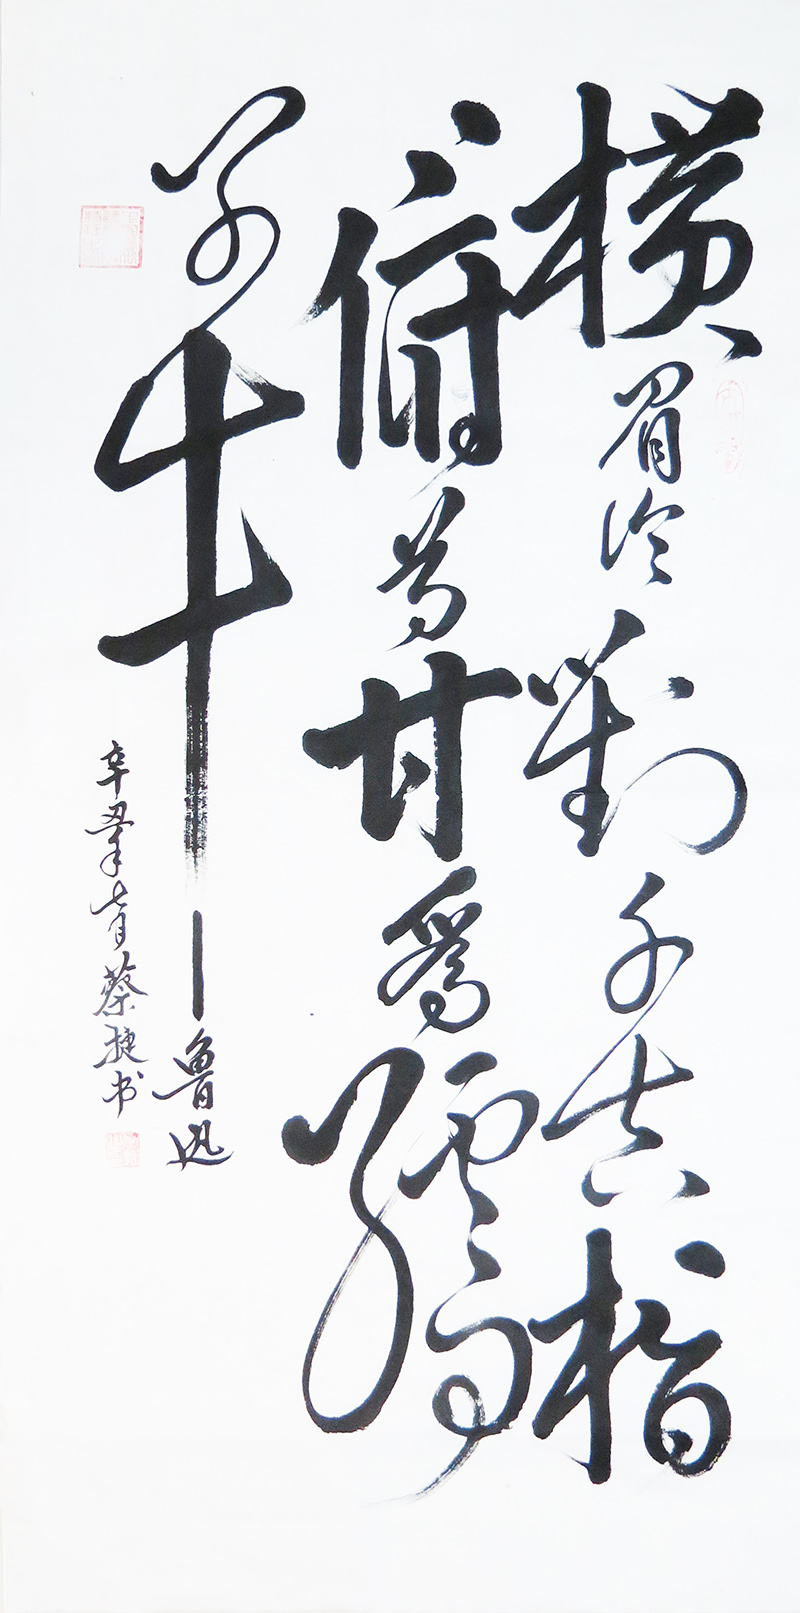 横眉冷對千夫指
俯首甘為孺
子牛—鲁迅
辛丑年七月蔡捷书